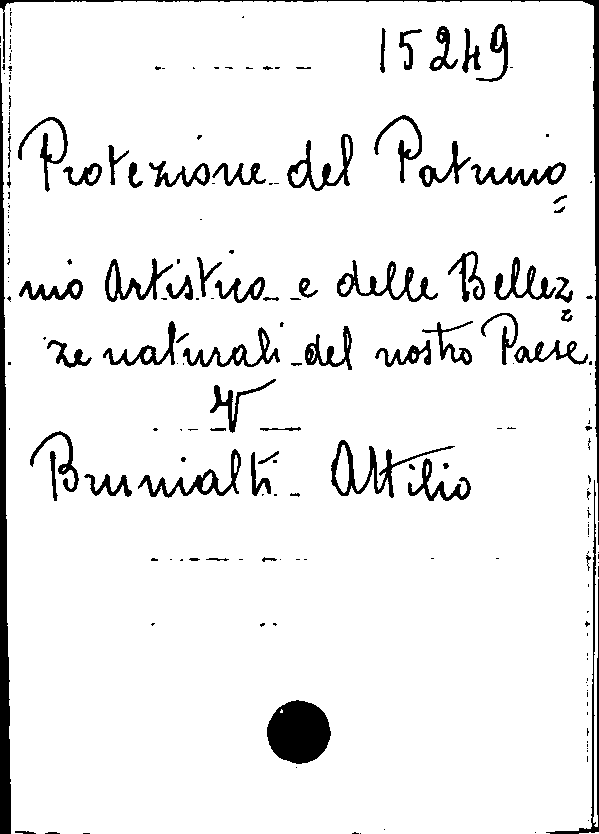 15249
Protezione del Patrimo=
nio Artistico e delle Bellez=
ze naturali del nostro Paese
V
Brunialti Attilio